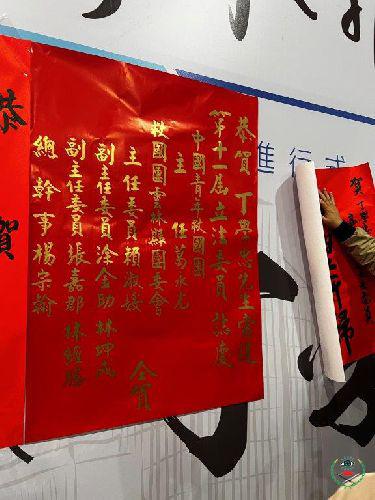 恭賀丁學忠先生當選
第十一屆立法委員誌慶
中國青年救國團
主任葛永光
救國團雲林縣團委會
主任委員賴淑媛
副主任委員涂金助 林坤
副主任委員張嘉郡 林經勝
總幹事楊宗翰
仝賀
恭賀
進行式
賀丁學